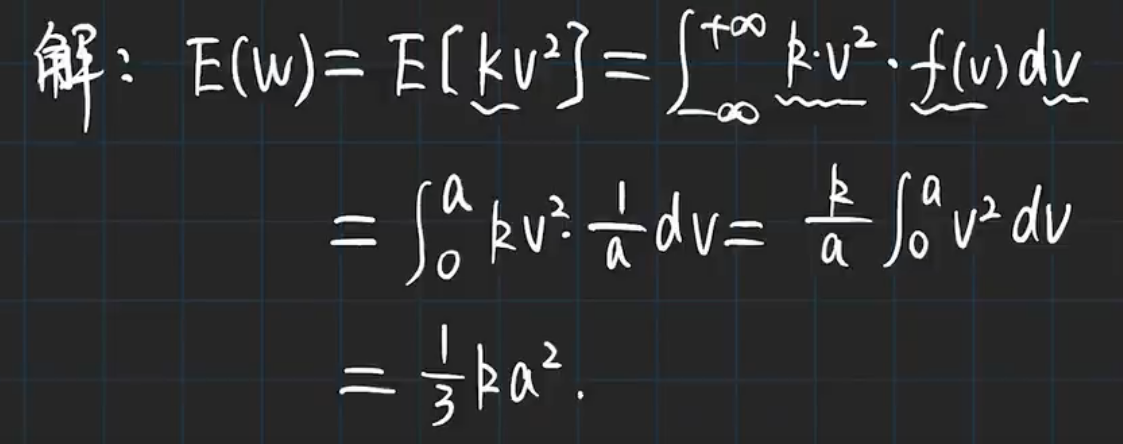 解: E(W) = E[kv²] = ∫_{-∞}^{+∞} k·v²·f(v)dv
= ∫_0^a kv²·\frac{1}{a}dv = \frac{k}{a}∫_0^a v²dv
= \frac{1}{3}ka².